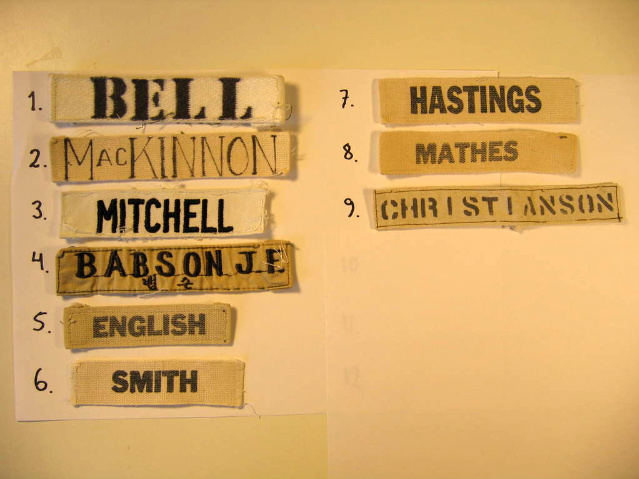 1. BELL
2. MACKINNON
3. MITCHELL
4. BABSON J.E
5. ENGLISH
6. SMITH
7. HASTINGS
8. MATHES
9. CHRISTIANSON